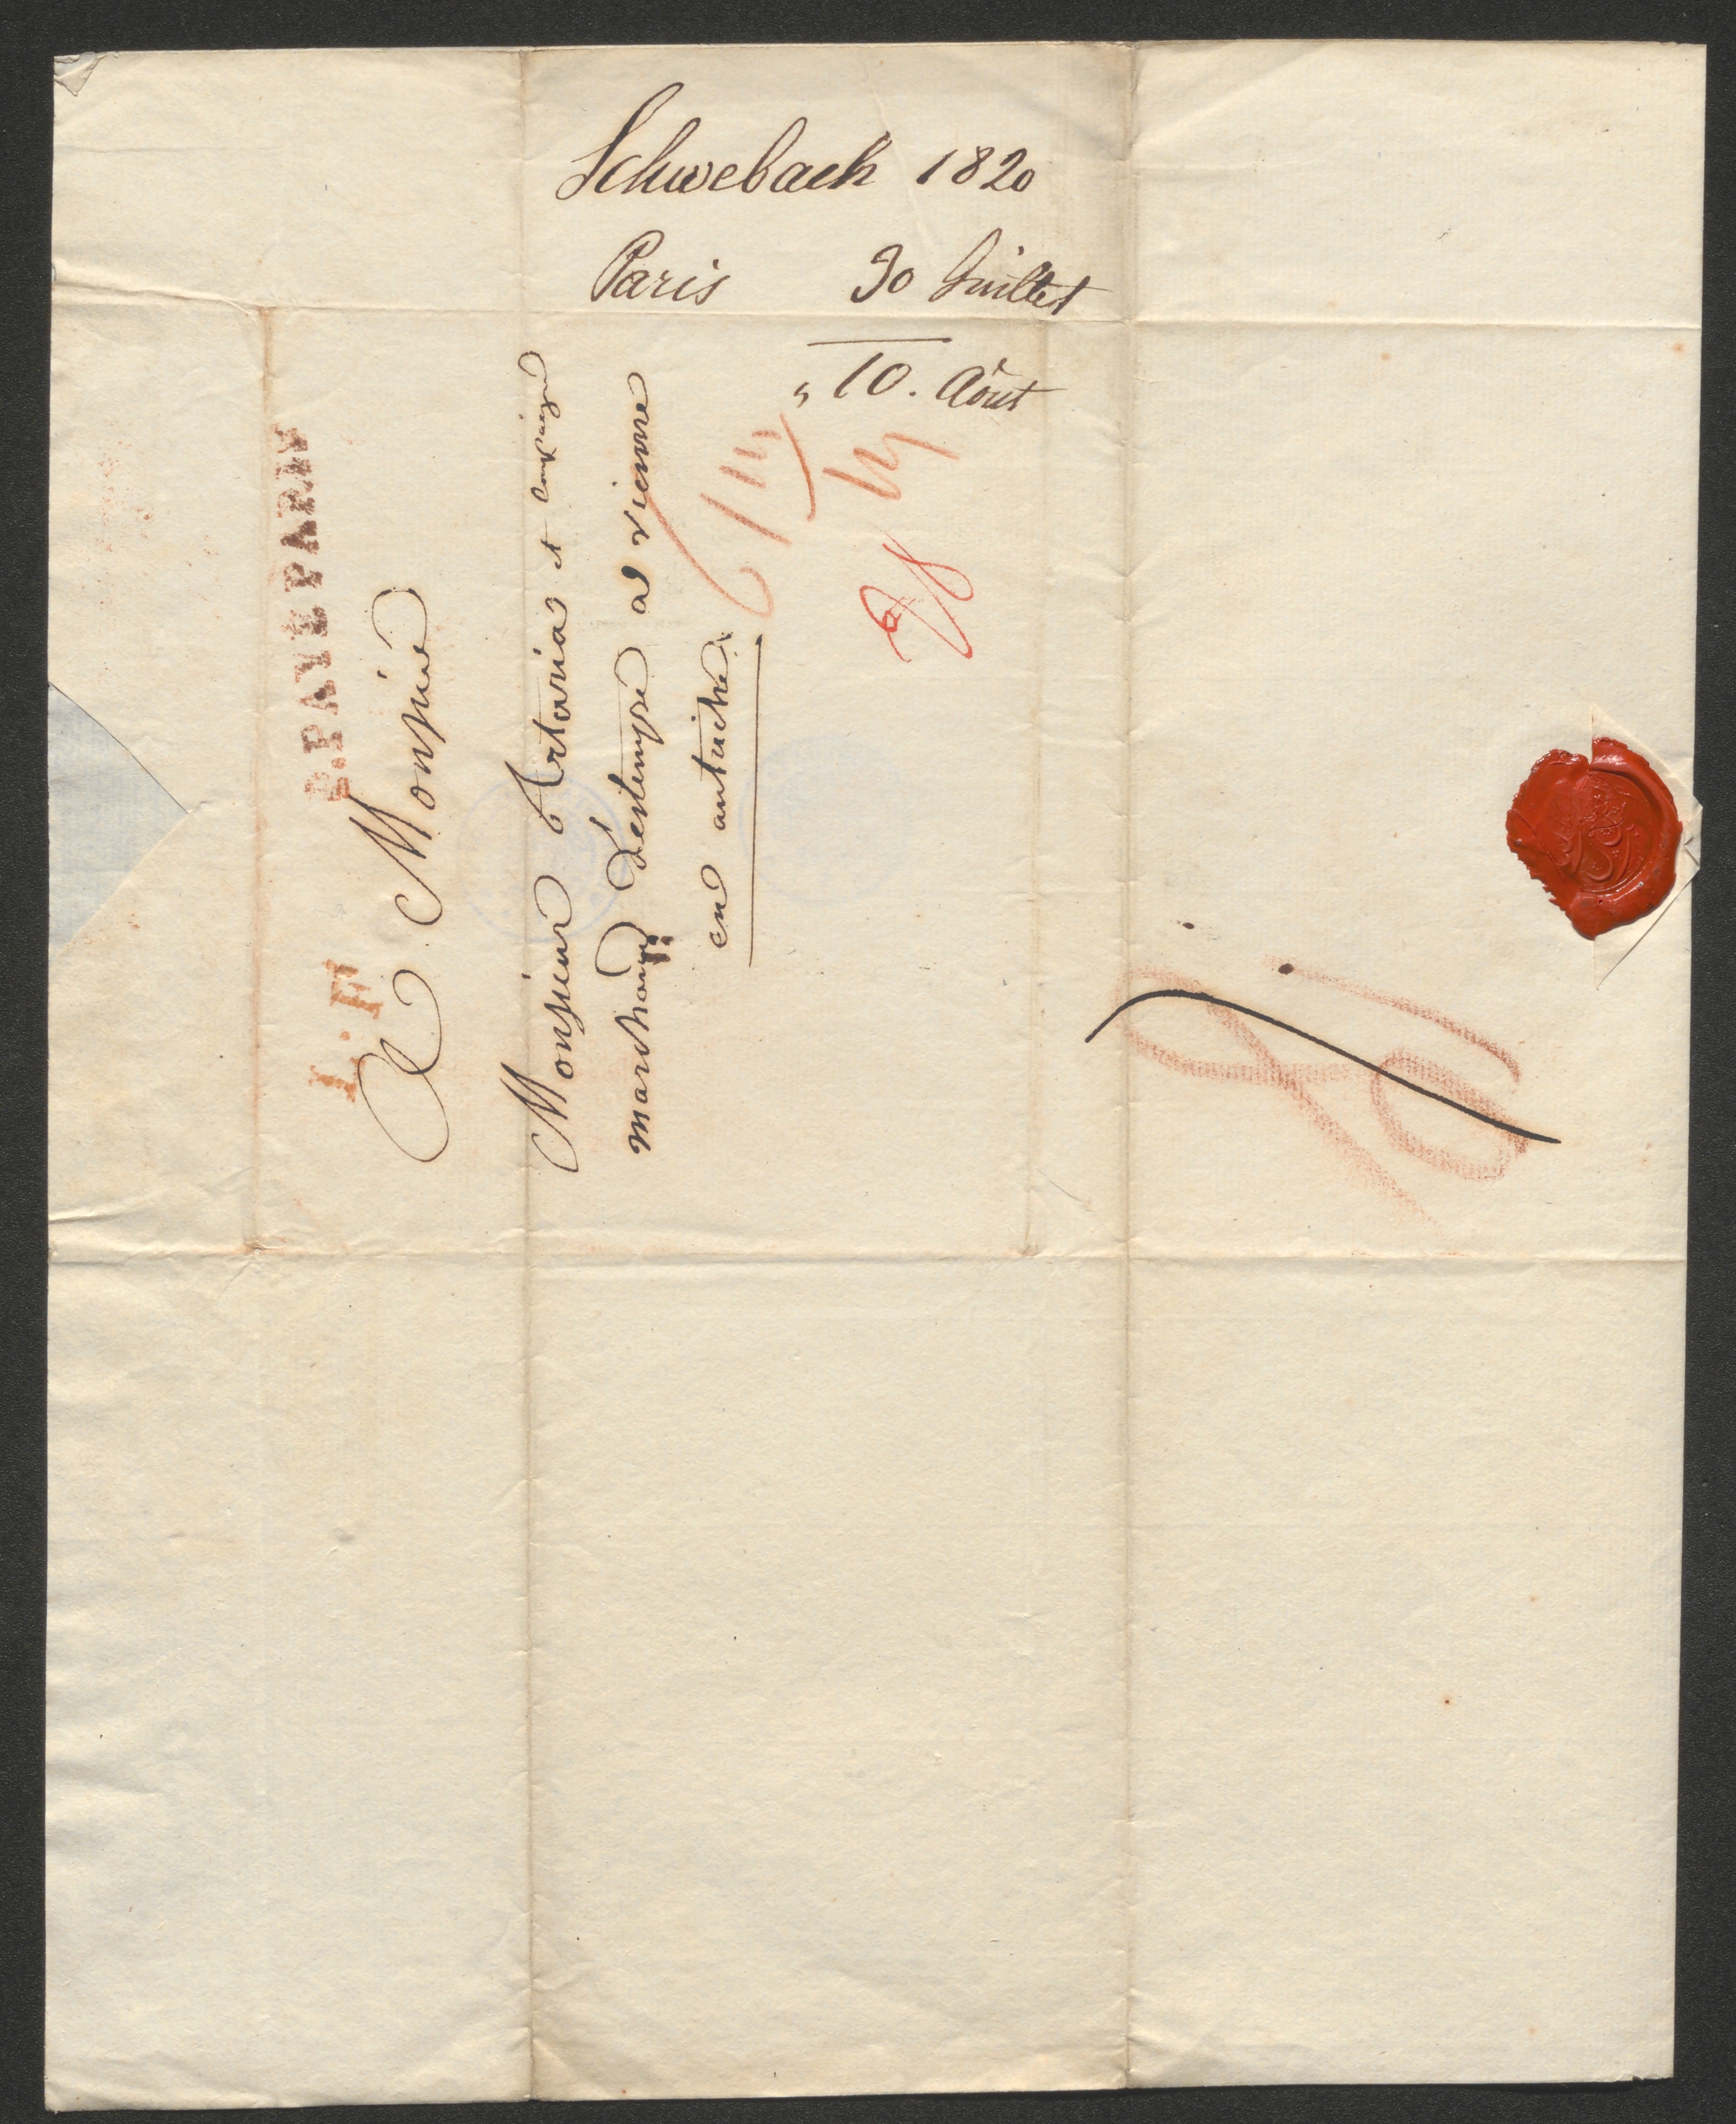 Schwebach 1820
Paris 30 Juillet
„ 10. Août
P. PAYÉ PARIS
L.F
A Monsieur
Monsieur Artaria et compaigne
marchand d'estempe a vienne
en autriche